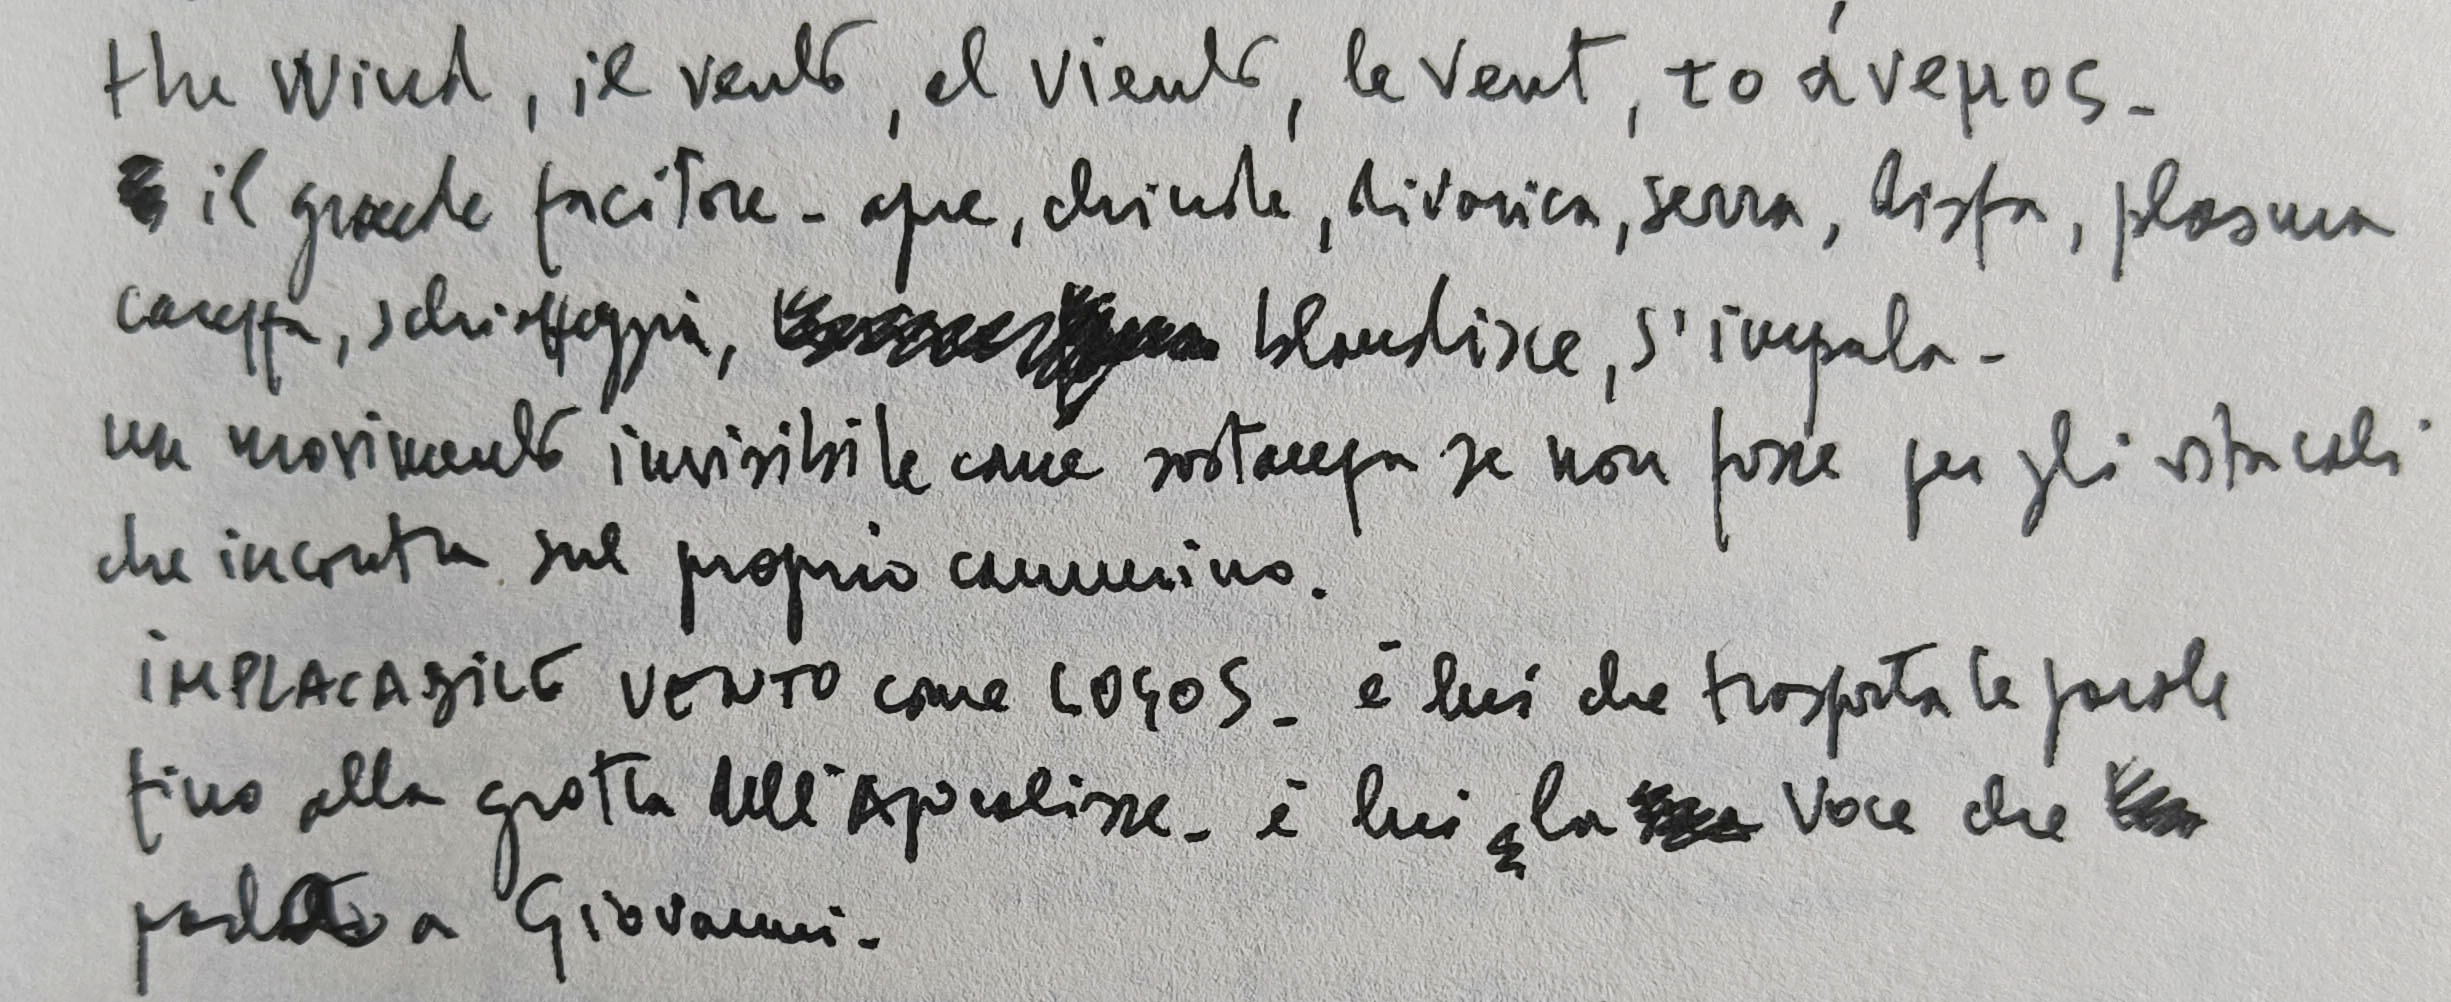 the wind, il vento, el viento, le vent, το άνεμος -
il grande facitore - apre, chiude, divarica, serra, disfa, plasma
carezza, schiaffeggia, blandisce, s'impala -
un movimento invisibile come sostanza se non fosse per gli ostacoli
che incontra sul proprio cammino.
IMPLACABILE VENTO come LOGOS - è lui che trasporta le parole
fino alla grotta dell'Apocalisse - è lui la voce che
parla a Giovanni -